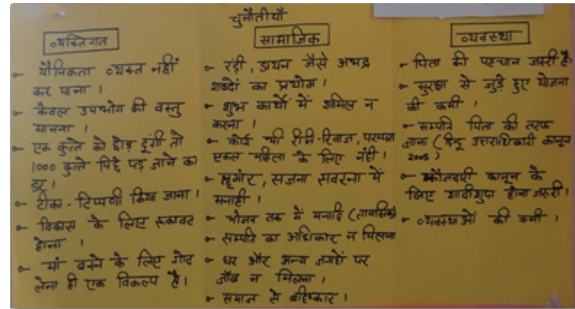 चुनौतीयाँ
व्यक्तिगत
यौनिकता व्यक्त नहीं
कर पाना ।
केवल उपभोग की वस्तु
मानना ।
एक कुत्ते को छोड़ दूंगी तो
1000 कुत्ते पिछे पड़ जाने का
डर ।
टीका-टिप्पणी किया जाना ।
विकास के लिए रूकावट
होना ।
माँ बनने के लिए गोद
लेना ही एक विकल्प है ।
सामाजिक
रंडी, डायन जैसे अभद्र
शब्दों का प्रयोग ।
शुभ कार्यों में शामिल न
करना ।
कोई भी रीति-रिवाज, परम्परा
एकल महिला के लिए नहीं ।
श्रृंगार, सजना सवरना में
मनाही ।
भोजन तक में मनाही (तामसिक)
सम्पत्ति का अधिकार न मिलना
घर और अन्य जगहों पर
न मिलना ।
समाज से बहिष्कार ।
व्यवस्था
पिता की पहचान जरूरी है
सुरक्षा से जुड़े हुए योजना
की कमी ।
सम्पत्ति पिता की तरफ
जाना (हिन्दू उत्तराधिकारी कानून
2005)
फौजदारी कानून के
लिए शादीशुदा होना जरूरी ।
व्यवस्थाओं की कमी ।